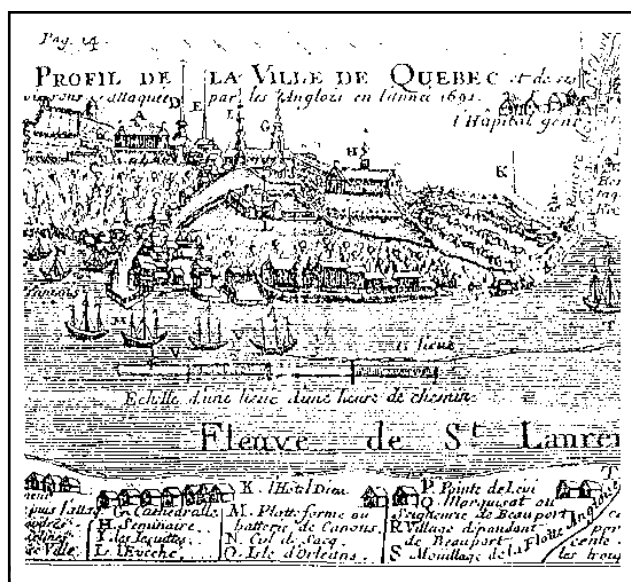 Pag. 14.
PROFIL DE LA VILLE DE QUEBEC et de ses
environs attaquée par les Anglois en l'année 1691.
l'Hôpital gen
A
D
E
L
G
H
K
I
M
V
Y
T
1/2 lieue
Echelle d'une lieue d'une heure de chemin.
Fleuve de St Lauren
G. Cathedralle
H. Seminaire
Y. des Jesuittes
L. l'Evêché
K. l'Hôtel Dieu
M. Platte forme ou
batterie de Canons
N. Cul de Sacq
O. Isle d'Orleans
P. Pointe de Levi
Q. Marquisat ou
Seigneurie de Beauport
R. Village dépandant
de Beauport
S. Mouillage de la Flotte Angloise
T